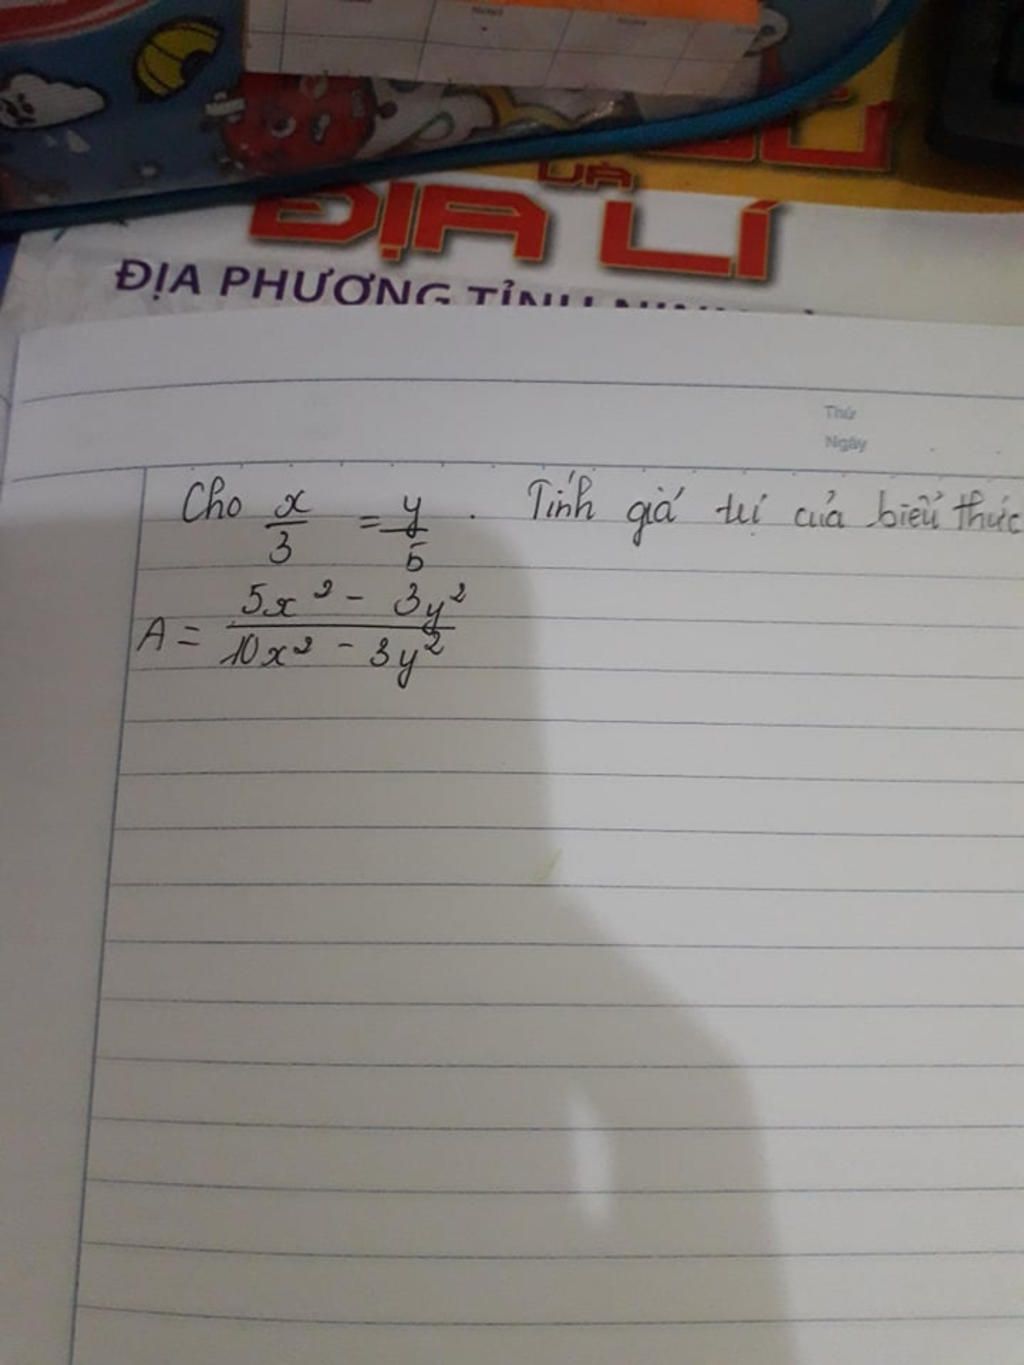 VÀ
ĐỊA LÍ
ĐỊA PHƯƠNG TỈNH
Thứ
Ngày
Cho x/3 = y/5 . Tính giá trị của biểu thức
A = 5x² - 3y² / 10x² - 3y²